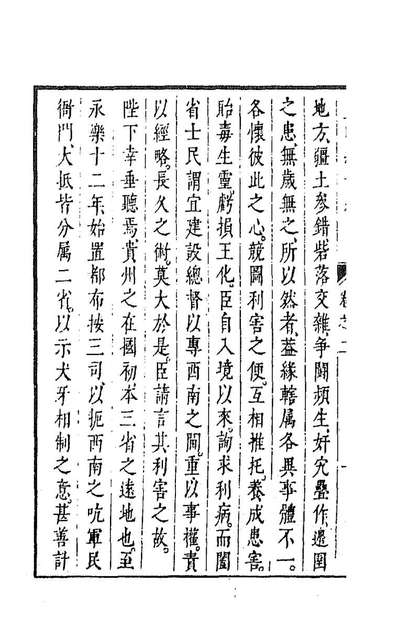 地方疆土參錯砦落交雜爭鬪頻生奸宄疊作邊圉
之患無歲無之所以然者葢緣轄属各異事體不一
各懷彼此之心競圖利害之便互相推托養成患害
貽毒生靈虧損王化臣自入境以來詢求利病而闔
省士民謂宜建設總督以專西南之閫重以事權責
以經略長久之術莫大於是臣請言其利害之故
陛下幸垂聽焉貴州之在國初本三省之遠地也至
永樂十二年始置都布按三司以扼西南之吭軍民
衙門大抵皆分属二省以示犬牙相制之意甚善計
卷之二